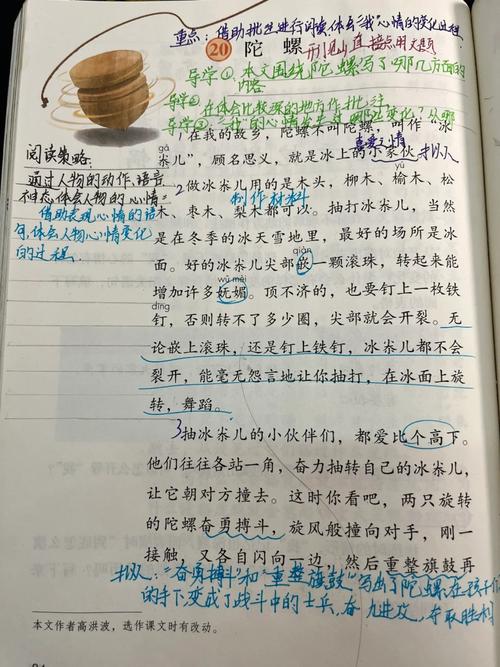 重点：借助批注进行阅读，体会"我"心情的变化过程
20 陀螺 开门见山 直接点明文题
导学①、本文围绕陀螺写了哪几方面的
内容
导学②、在体会比较深的地方作批注
导学③
在我的故乡，陀螺不叫陀螺，叫作"冰
gá
尜儿"，顾名思义，就是冰上的小家伙 拟人
喜爱之情
阅读策略：
通过人物的动作、语言
神态，体会人物的心情
借助表现心情的语
句，体会人物心情变化
的过程
制作材料
2做冰尜儿用的是木头，柳木、榆木、松
木、枣木、梨木都可以。抽打冰尜儿，当然
是在冬季的冰天雪地里，最好的场所是冰
qiàn
面。好的冰尜儿尖部嵌一颗滚珠，转起来能
wǔ mèi
增加许多妩媚。顶不济的，也要钉上一枚铁
dīng
钉，否则转不了多少圈，尖部就会开裂。无
论嵌上滚珠，还是钉上铁钉，冰尜儿都不会
裂开，能毫无怨言地让你抽打，在冰面上旋
转，舞蹈。
3抽冰尜儿的小伙伴们，都爱比个高下。
他们往往各站一角，奋力抽转自己的冰尜儿，
让它朝对方撞去。这时你看吧，两只旋转
的陀螺奋勇搏斗，旋风般撞向对手，刚一
接触，又各自闪向一边，然后重整旗鼓再
拟人："奋勇搏斗"和"重整旗鼓"写出了陀螺在孩子们
的手下变成了战斗中的士兵，奋力进攻，夺取胜利
本文作者高洪波，选作课文时有改动。